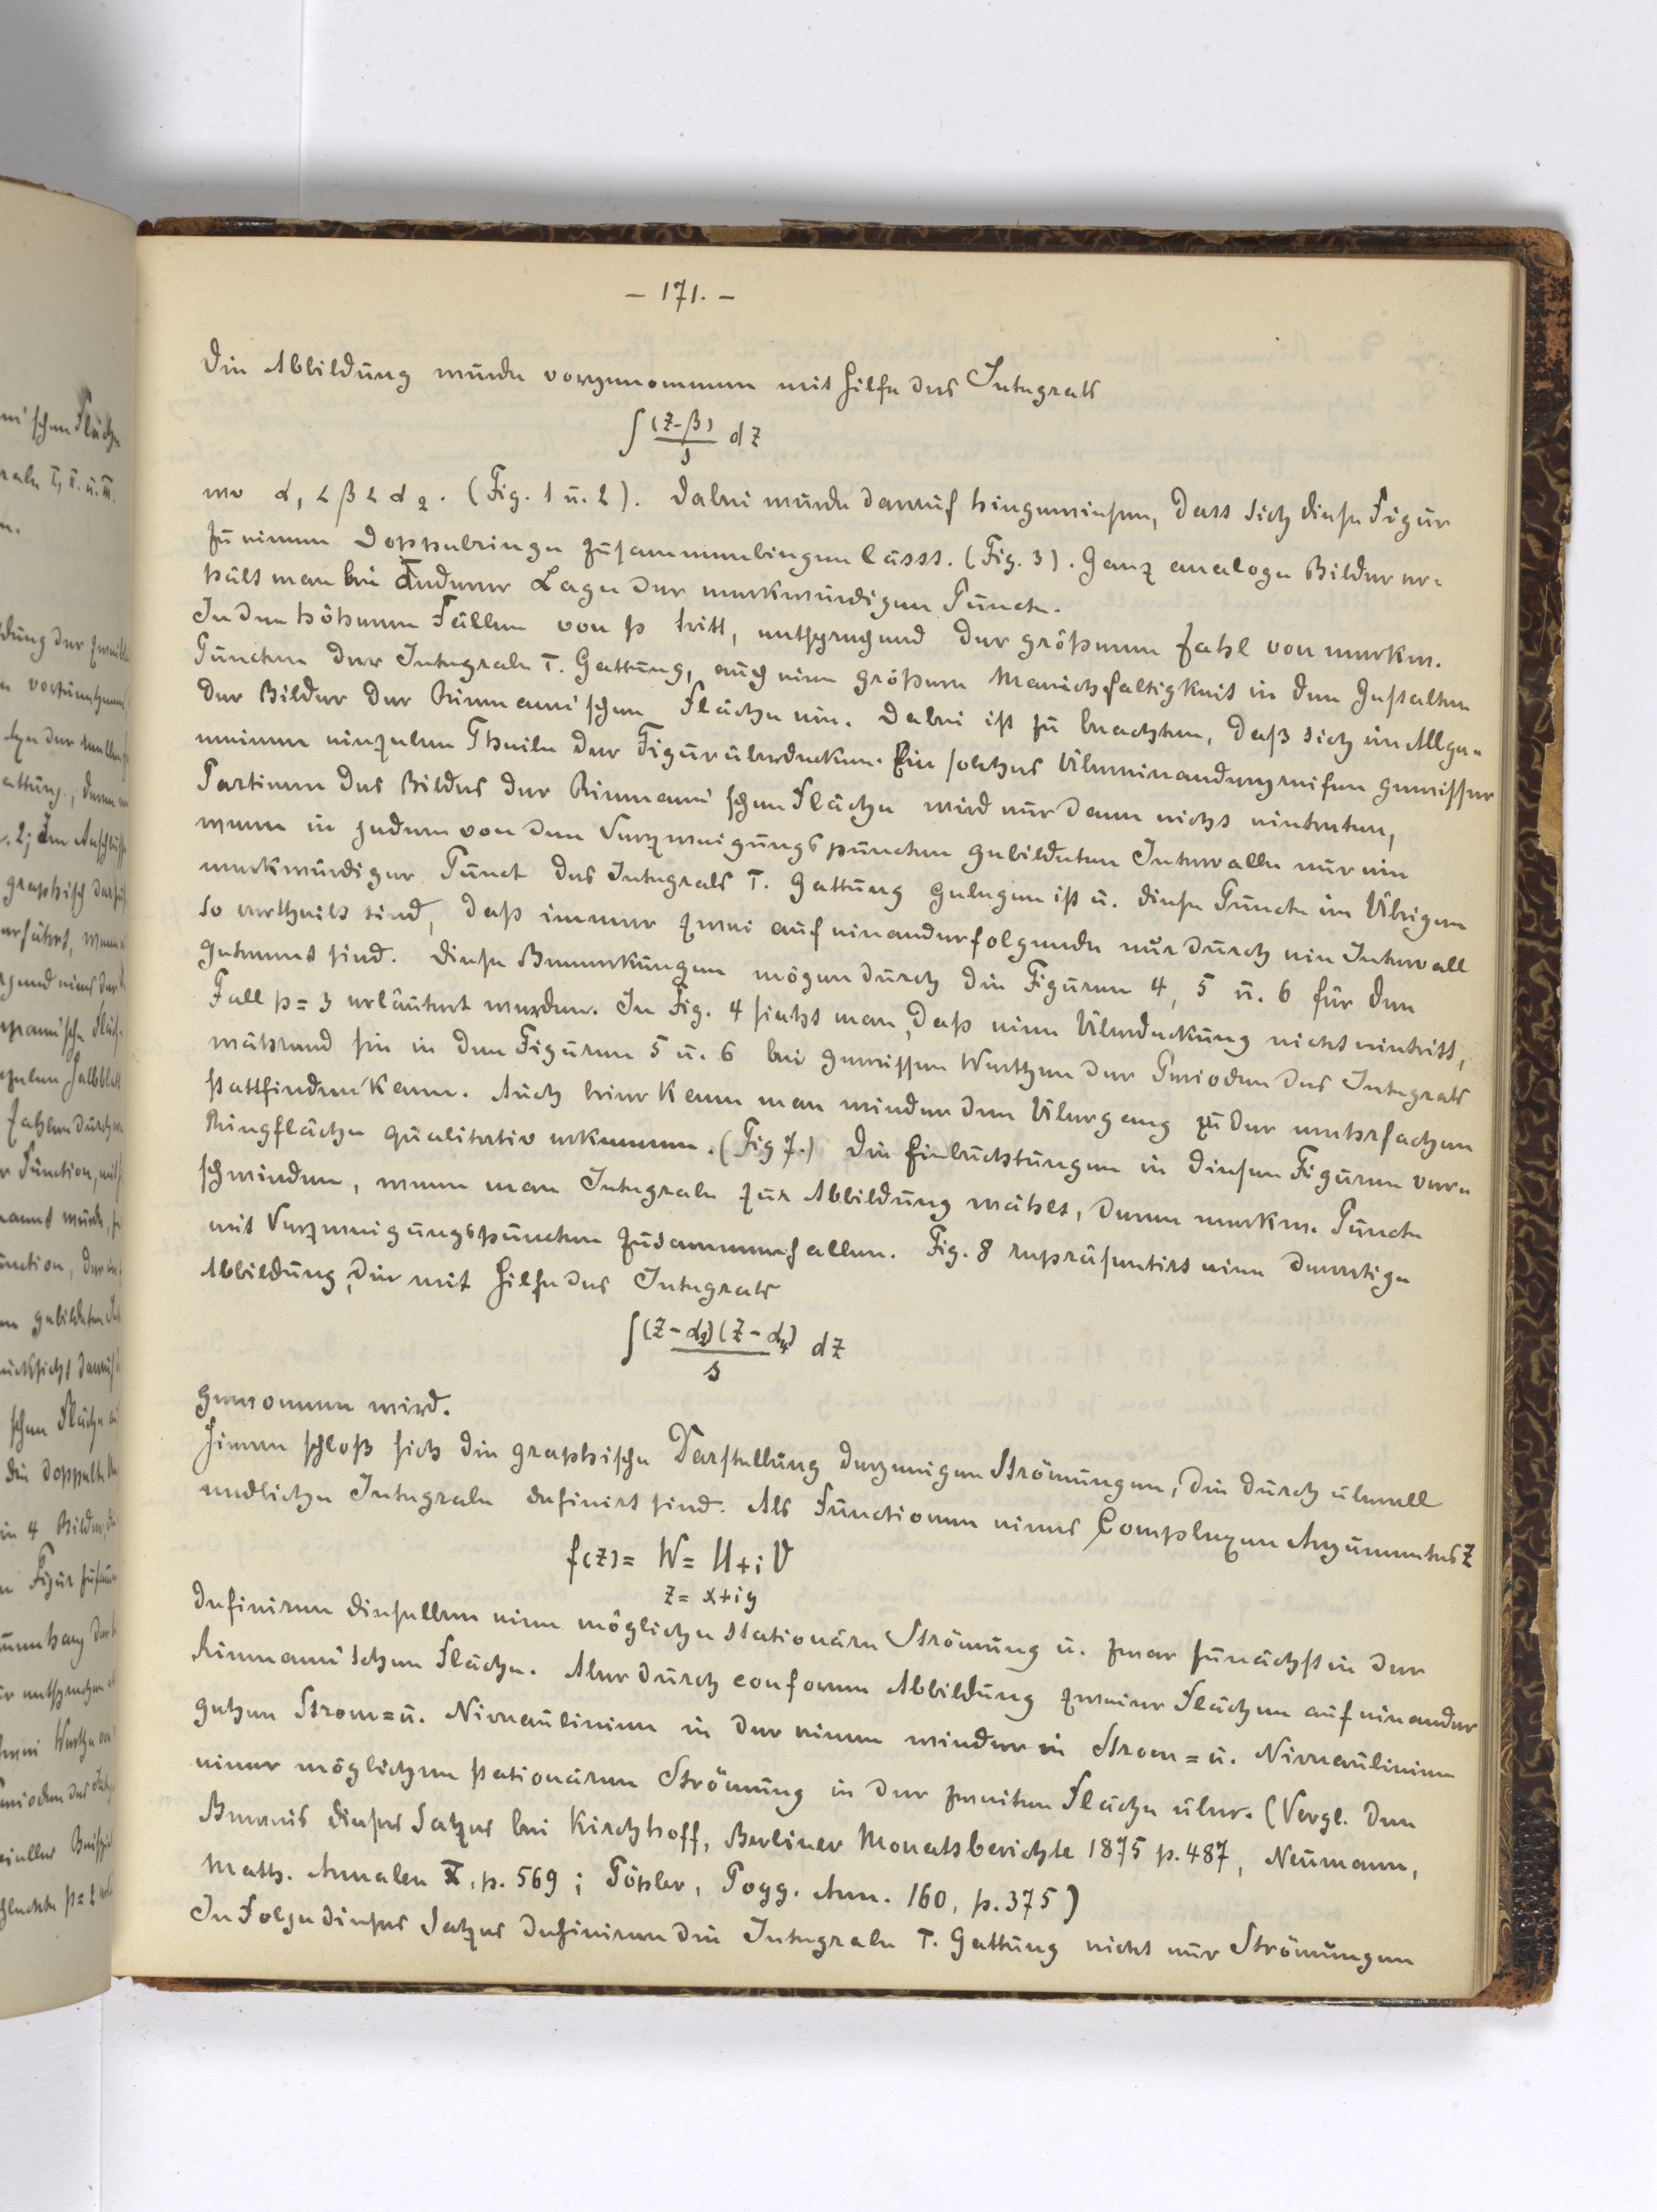 – 171. –
Die Abbildung wurde vorgenommen mit Hilfe des Integrals
∫ (z-β)/s dz
wo α₁ < β < α₂. (Fig. 1 u. 2). Dabei wurde darauf hingewiesen, dass sich diese Figur
zu einem Doppelringe zusammenbiegen lässt. (Fig. 3). Ganz analoge Bilder er=
hält man bei anderer Lage der merkwürdigen Puncte.
In den höheren Fällen von p tritt, entsprechend der größeren Zahl von merkw.
Puncten der Integrale I. Gattung, auch eine größere Manichfaltigkeit in den Gestalten
der Bilder der Riemann'schen Fläche ein. Dabei ist zu beachten, daß sich im Allge=
meinen einzelne Theile der Figur überdecken. Ein solches Übereinandergreifen gewisser
Partieen des Bildes der Riemann'schen Fläche wird nur dann nicht eintreten,
wenn in jedem von den Verzweigungspuncten gebildeten Intervalle nur ein
merkwürdiger Punct des Integrals I. Gattung gelegen ist u. diese Puncte im Übrigen
so vertheilt sind, daß immer zwei auf einanderfolgende nur durch ein Intervall
getrennt sind. Diese Bemerkungen mögen durch die Figuren 4, 5 u. 6 für den
Fall p = 3 erläutert werden. In Fig. 4 sieht man, daß eine Überdeckung nicht eintritt,
während sie in den Figuren 5 u. 6 bei gewissen Werthen der Perioden des Integrals
stattfinden kann. Auch hier kann man wieder den Übergang zu der mehrfachen
Ringfläche qualitativ erkennen. (Fig 7.) Die Einbuchtungen in diesen Figuren ver=
schwinden, wenn man Integrale zur Abbildung wählt, deren merkw. Puncte
mit Verzweigungspuncten zusammenfallen. Fig. 8 repräsentirt eine derartige
Abbildung, die mit Hilfe des Integrals
∫ (z-α₂)(z-α₄)/s dz
gewonnen wird.
Hieran schloß sich die graphische Darstellung derjenigen Strömungen, die durch überall
endliche Integrale definirt sind. Als Functionen eines Complexen Argumentes z
f(z) = W = U + i V
z = x + iy
definiren dieselben eine mögliche stationäre Strömung u. zwar zunächst in der
Riemann'schen Fläche. Aber durch conforme Abbildung zweier Flächen auf einander
gehen Strom= u. Niveaulinien in der einen wieder in Strom= u. Niveaulinien
einer möglichen stationären Strömung in der zweiten Fläche über. (Vergl. den
Beweis dieses Satzes bei Kirchhoff, Berliner Monatsberichte 1875 p. 487, Neumann,
Math. Annalen X, p. 569; Töpler, Pogg. Ann. 160, p. 375)
In Folge dieses Satzes definiren die Integrale I. Gattung nicht nur Strömungen